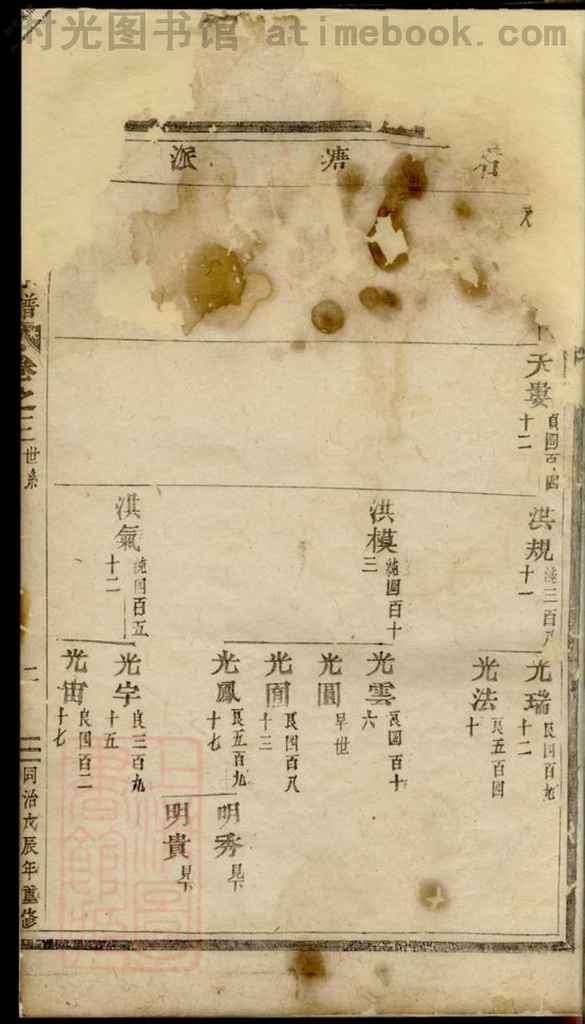 时光图书馆 atimebook.com
塘
派
天婁
貞四百四
十二
洪規
純三百八
十一
洪模
純四百十
三
洪氣
純四百五
十二
光瑞
艮四百九
十二
光法
艮五百四
十
光雲
艮四百十
六
光圓
早世
光圃
艮四百八
十三
光鳳
艮五百九
十七
光宇
艮三百九
十五
光宙
艮四百二
十七
明秀
見下
明貴
見下
譜
卷之二
世系
二
同治戊辰年重修